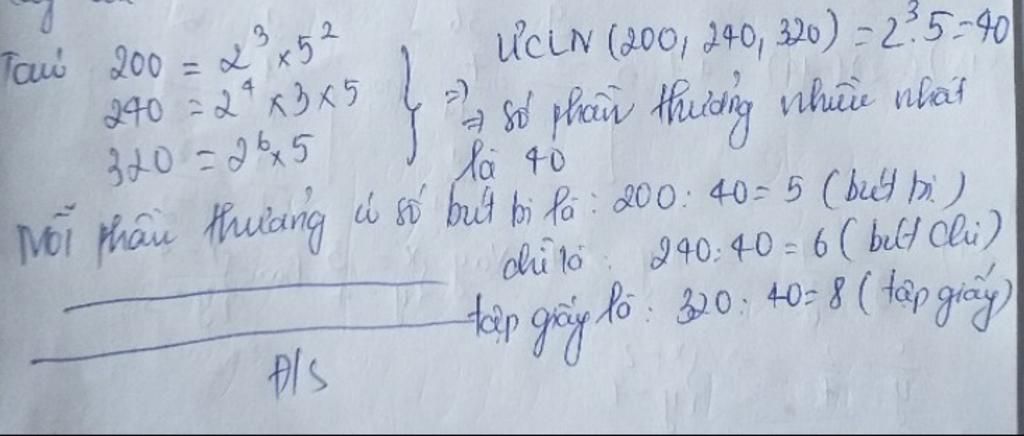 Ta có 200 = 2³ × 5²
240 = 2⁴ × 3 × 5
320 = 2⁶ × 5
ƯCLN (200, 240, 320) = 2³.5 = 40
=> => số phần thưởng nhiều nhất
là 40
Mỗi phần thưởng có số bút bi là : 200 : 40 = 5 (bút bi)
chì là : 240 : 40 = 6 (bút chì)
tập giấy là : 320 : 40 = 8 (tập giấy)
Đ/S